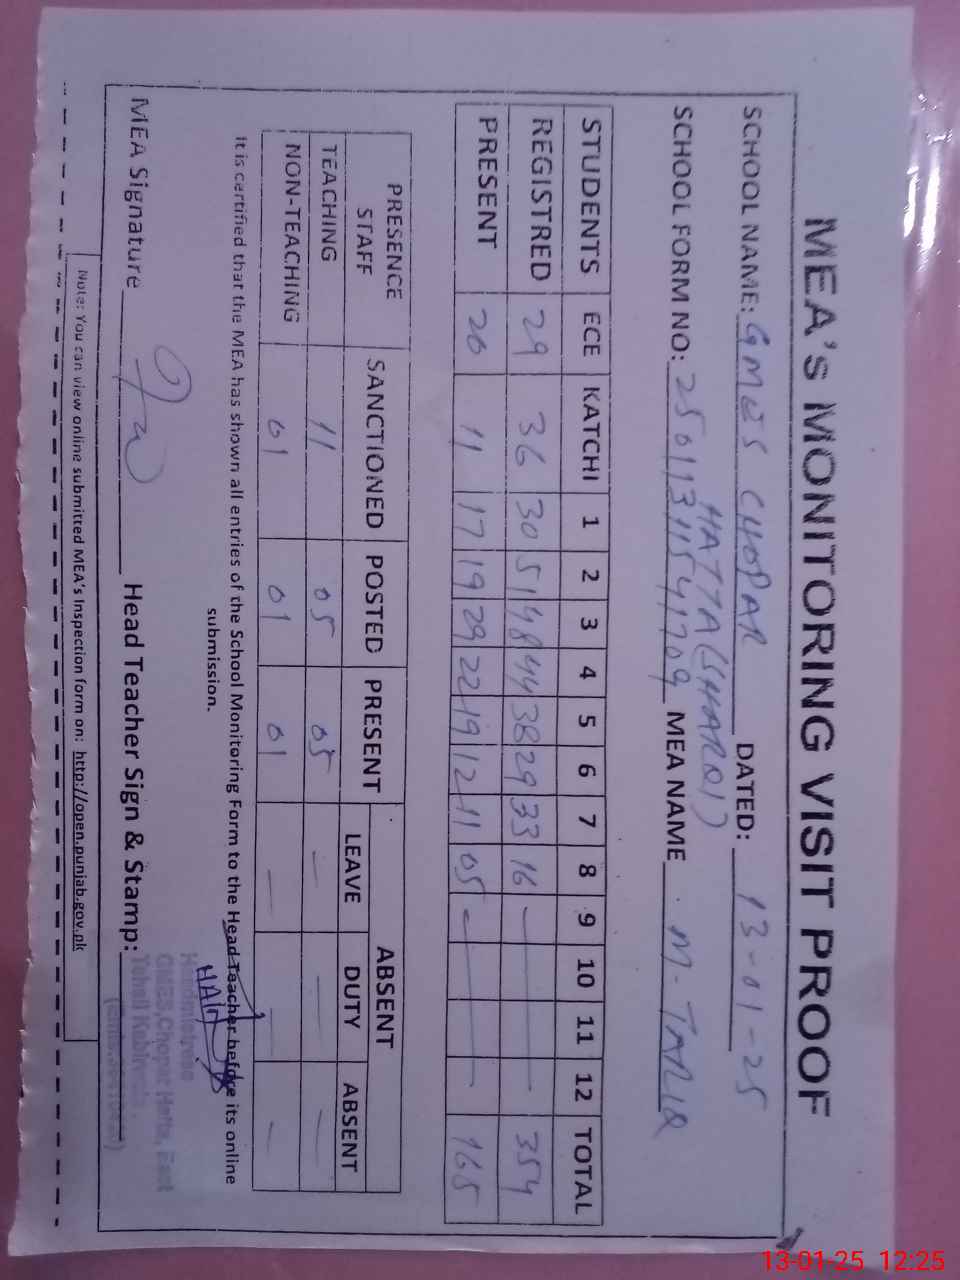 MEA's MONITORING VISIT PROOF
SCHOOL NAME: GMES CHOPAR HATTA (SHARQI) DATED: 13-01-25
SCHOOL FORM NO: 25011311541709 MEA NAME M-TARIQ
STUDENTS ECE KATCHI 1 2 3 4 5 6 7 8 9 10 11 12 TOTAL
REGISTRED 29 36 30 51 48 44 38 29 33 16 — 354
PRESENT 20 11 17 19 29 22 19 12 11 05 — 165
PRESENCE STAFF SANCTIONED POSTED PRESENT ABSENT
LEAVE DUTY ABSENT
TEACHING 11 05 05 — — —
NON-TEACHING 01 01 01 — — —
It is certified that the MEA has shown all entries of the School Monitoring Form to the Head Teacher before its online
submission.
MEA Signature Head Teacher Sign & Stamp:
Headmistress
GMES, Chopar Hatta, East
Tehsil Kabirwala
Note: You can view online submitted MEA's Inspection form on: http://open.punjab.gov.pk
13-01-25 12:25